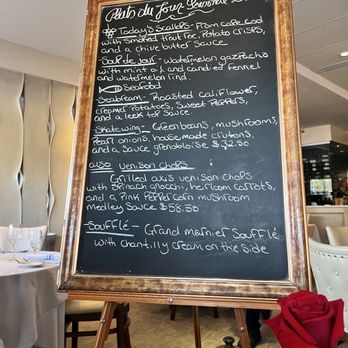 Plats du Jour
Today's Scallops - From cape cod
with smoked trout roe, Potato crisps,
and a chive butter sauce
Soup du jour - watermelon gazpacho
with mint oil and candied fennel
and watermelon rind.
Seafood
Seabream - Roasted califlower,
creamer Potatoes, sweet Peppers,
and a leek tar sauce.
Skatewing - Greenbeans, mushrooms,
Pearl onions, house made crutons,
and a sauce grenobloise $52.50
also venison chops
Grilled axis venison chops
with spinach gnocchi, heirloom carrots,
and a Pink Peppercorn mushroom
medley sauce $58.50
Soufflé - Grand marnier Soufflé
with chantilly cream on the side